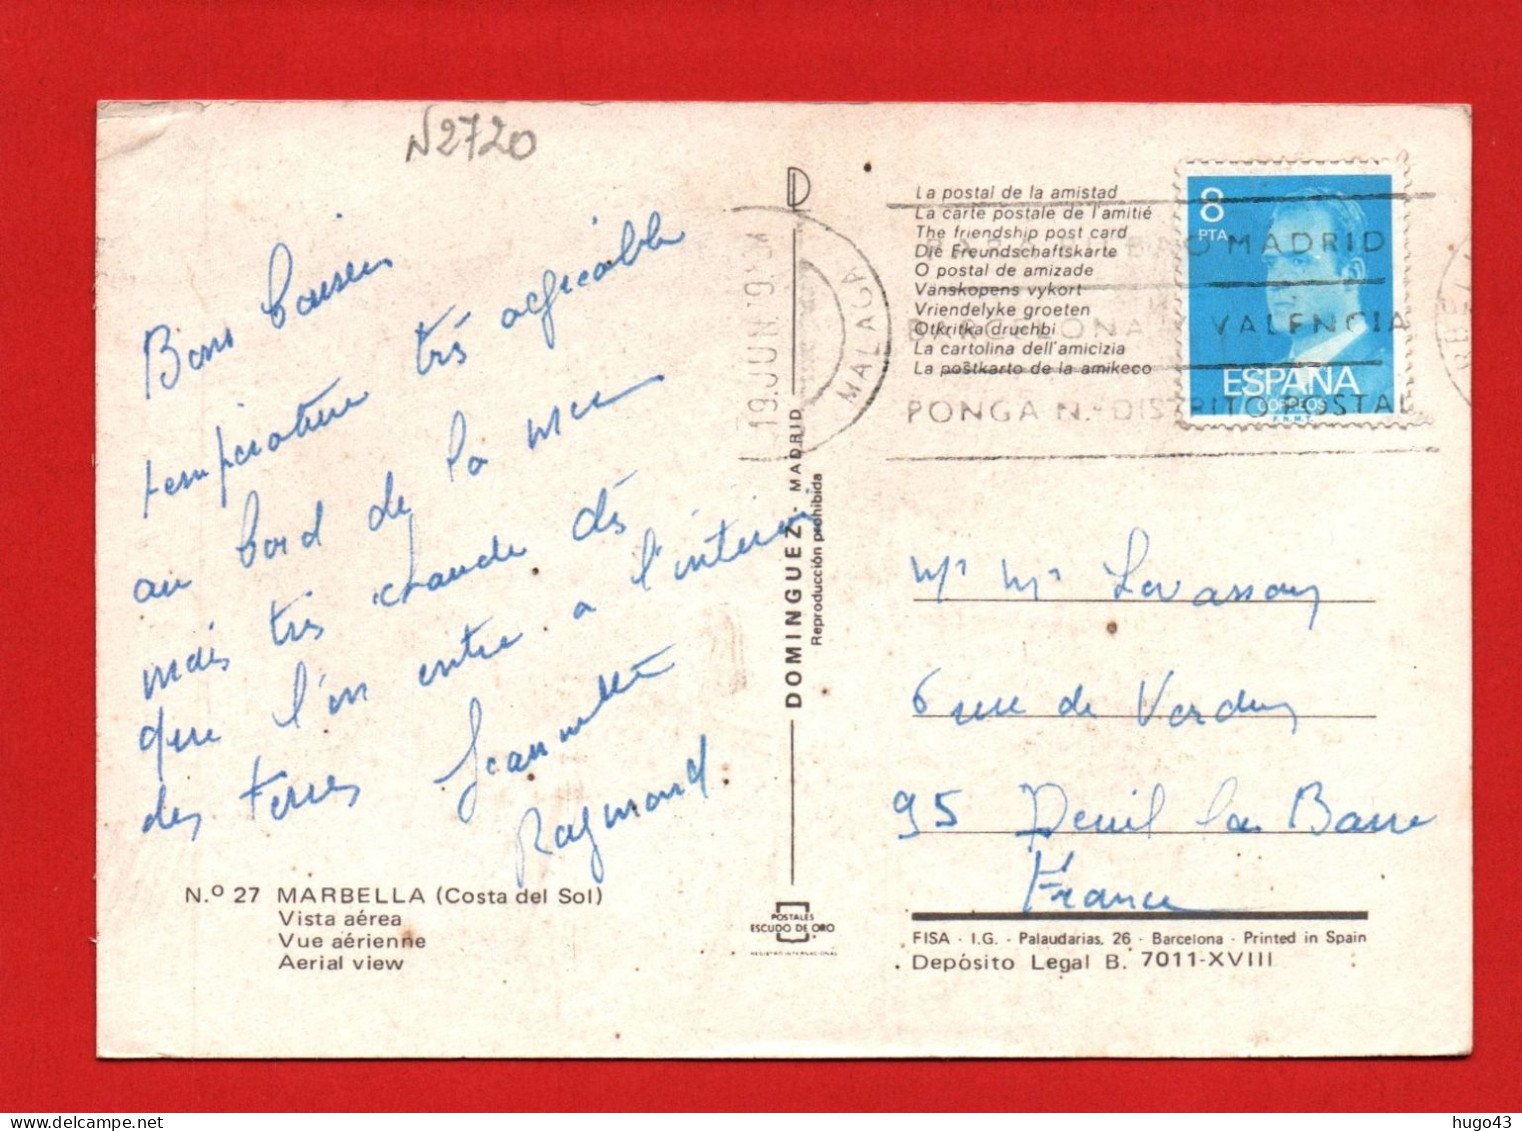 N2720
Bons baisers
température très agréable
au bord de la mer
mais très chaude dès
que l'on entre a l'intérieur
des terres Jeannette
Raymond
N.º 27 MARBELLA (Costa del Sol)
Vista aérea
Vue aérienne
Aerial view
D
DOMINGUEZ - MADRID
Reproducción prohibida
POSTALES
ESCUDO DE ORO
REGISTRO INTERNACIONAL
La postal de la amistad
La carte postale de l'amitié
The friendship post card
Die Freundschaftskarte
O postal de amizade
Vänskopens vykort
Vriendelyke groeten
Otkritka druchbi
La cartolina dell'amicizia
La poŝtkarto de la amikeco
19.JUN.79
MALAGA
MADRID
BARCELONA VALENCIA
PONGA N.º DISTRITO POSTAL
8
PTA
ESPAÑA
CORREOS
F.N.M.T.
Mr Mme Levasson
6 rue de Verdun
95 Deuil la Barre
France
FISA - I.G. - Palaudarias, 26 - Barcelona - Printed in Spain
Depósito Legal B. 7011-XVIII
hugo43